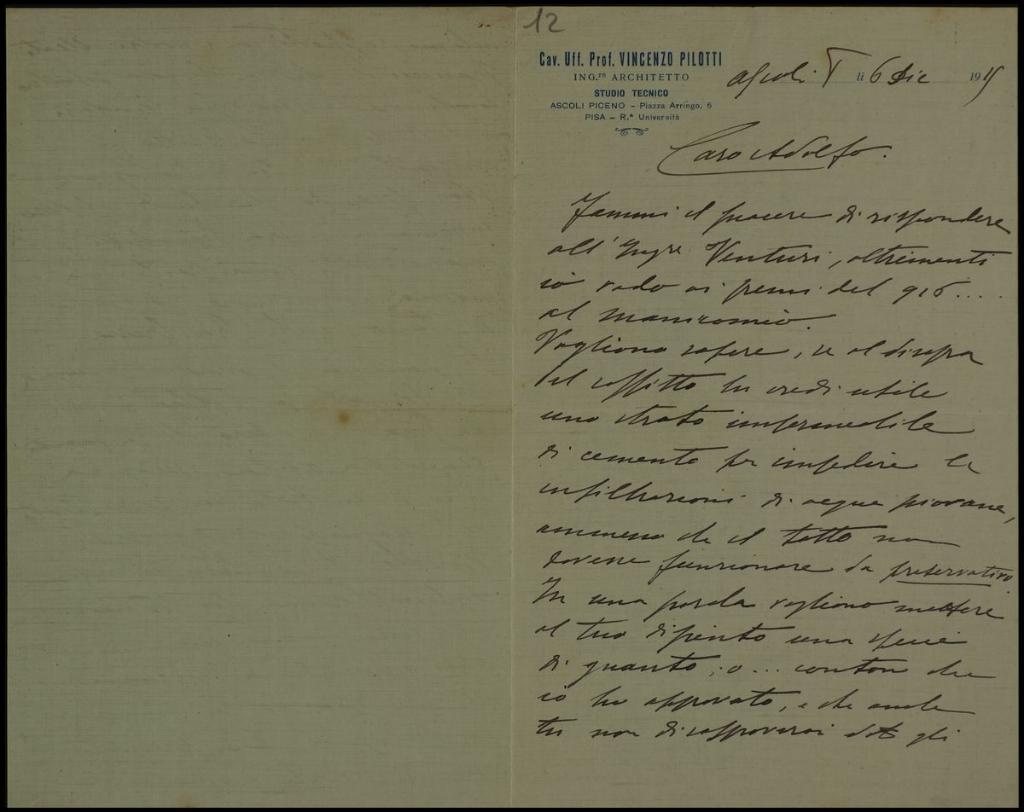 12
Cav. Uff. Prof. VINCENZO PILOTTI
ING.re ARCHITETTO
STUDIO TECNICO
ASCOLI PICENO – Piazza Arringo, 6
PISA – R.a Università
Ascoli P li 6 Dic 1915
Caro Adolfo.
Fammi il piacere di rispondere
all'Ingre Venturi, altrimenti
io vado ai primi del 916....
al manicomio.
Vogliono sapere, se al disopra
del soffitto tu credi utile
uno strato impermeabile
di cemento per impedire le
infiltrazioni di acqua piovana,
ammesso che il tetto non
dovesse funzionare da preservativo.
In una parola vogliono mettere
al tuo dipinto una specie
di guanto; o... che
io ho approvato, e che anche
tu non disapproverai gli